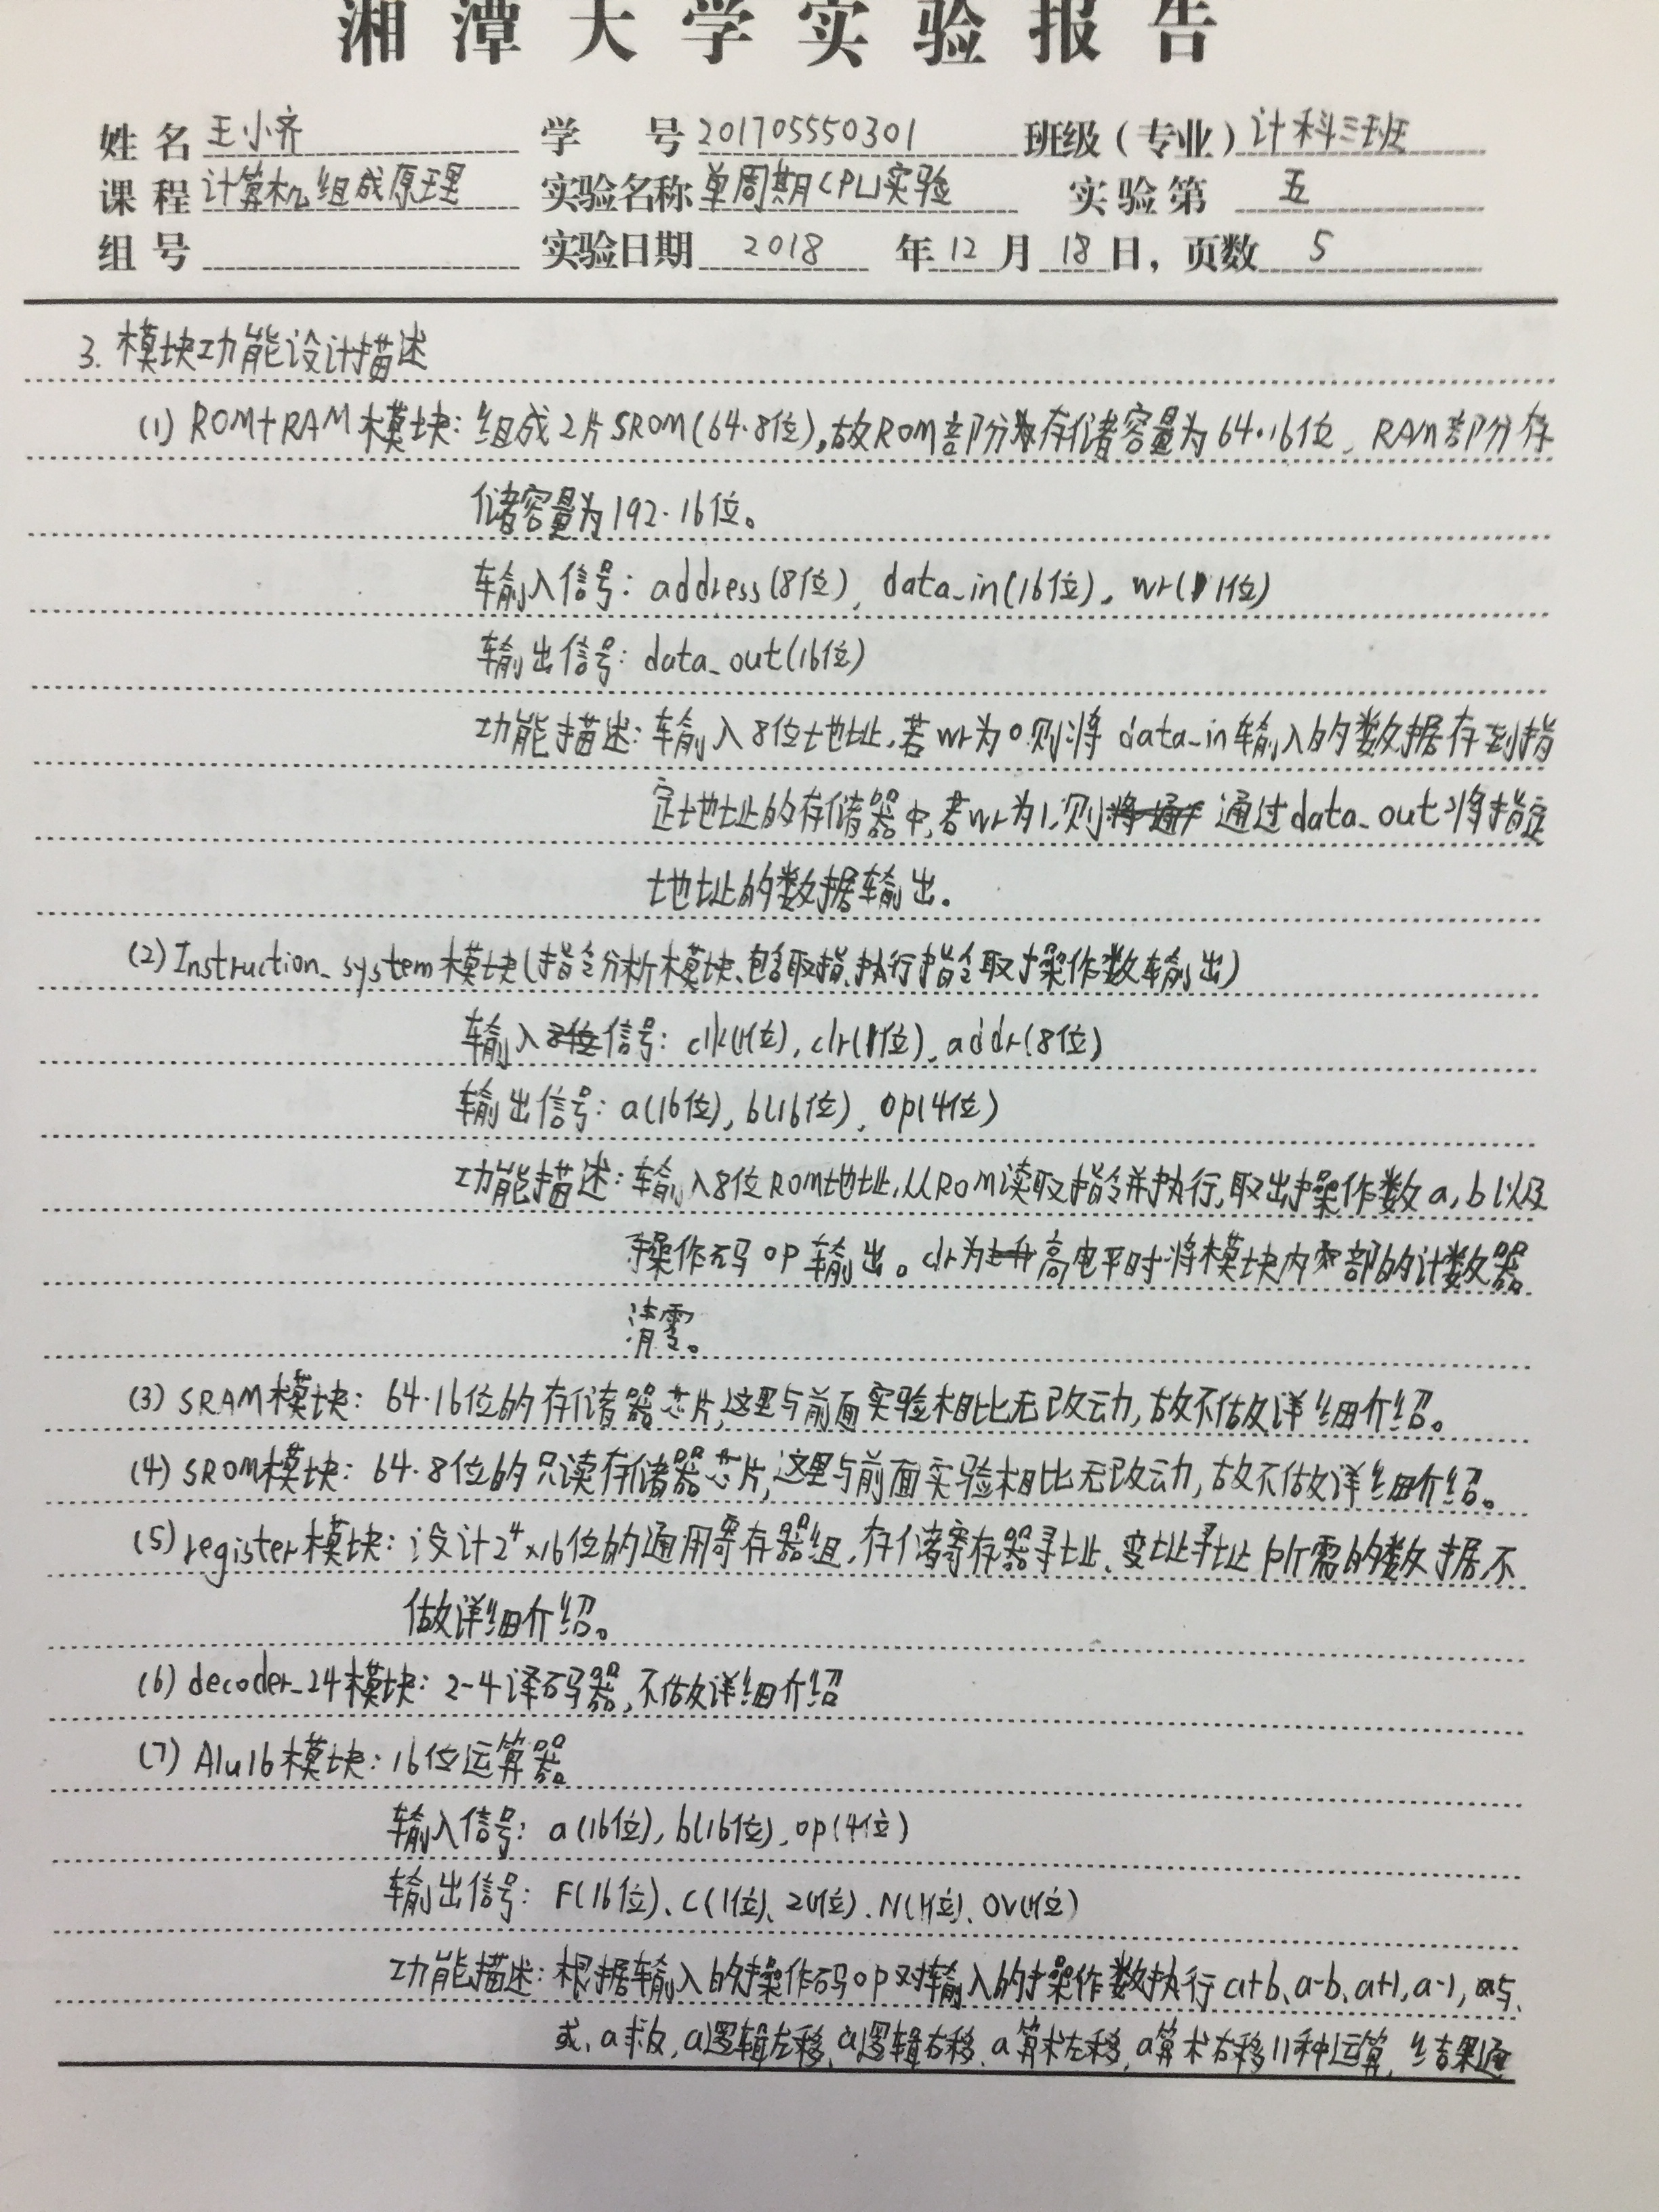 湘潭大学实验报告
姓名 王小齐 学号 201705550301 班级(专业) 计科三班
课程 计算机组成原理 实验名称 单周期CPU实验 实验第 五
组号 实验日期 2018 年 12 月 18 日, 页数 5
3. 模块功能设计描述
(1) ROM+RAM模块: 组成2片SROM(64·8位),故ROM部分存储容量为64·16位、RAM部分存
储容量为192·16位。
输入信号: address(8位), data_in(16位), wr(1位)
输出信号: data_out(16位)
功能描述: 输入8位地址,若wr为0则将data_in输入的数据存到指
定地址的存储器中,若wr为1,则通过data_out将指定
地址的数据输出。
(2) Instruction_system模块(指令分析模块、包含取指、执行指令取操作数输出)
输入信号: clk(1位), clr(1位), addr(8位)
输出信号: a(16位), b(16位), op(4位)
功能描述: 输入8位ROM地址,从ROM读取指令并执行,取出操作数a,b以及
操作码op输出。clr为高电平时将模块内部的计数器
清零。
(3) SRAM模块: 64·16位的存储器芯片,这里与前面实验相比无改动,故不做详细介绍。
(4) SROM模块: 64·8位的只读存储器芯片,这里与前面实验相比无改动,故不做详细介绍。
(5) register模块: 设计2⁴×16位的通用寄存器组,存储寄存器寻址、变址寻址所需的数据,不
做详细介绍。
(6) decoder_24模块: 2-4译码器,不做详细介绍
(7) Alu16模块: 16位运算器
输入信号: a(16位), b(16位), op(4位)
输出信号: F(16位)、C(1位)、Z(1位)、N(1位)、OV(1位)
功能描述: 根据输入的操作码op对输入的操作数执行a+b、a-b、a+1,a-1,与、
或、a求反,a逻辑左移、a逻辑右移、a算术左移,a算术右移11种运算,结果通